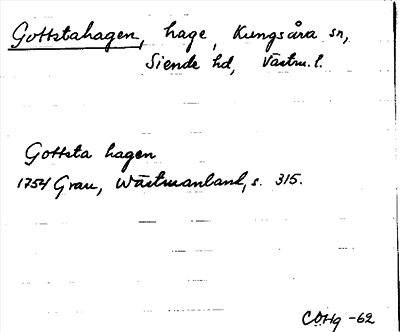 Gottstahagen, hage, Kungsåra sn,
Siende hd, Västm. l.
Gottsta hagen
1754 Grau, Wästmanland, s. 315.
COHg -62